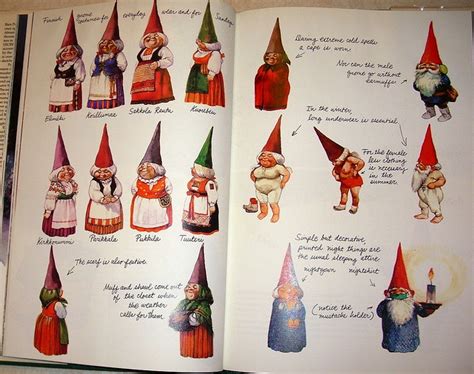 Finnish gnome costumes for everyday wear and for Sundays
Elimäki
Koillismaa
Sakkola Rautu
Kuorevesi
Kirkkonummi
Parkkala
Pukkila
Tuuteri
The scarf is also festive.
Muff and shawl come out
of the closet when
the weather
calls for them.
During extreme cold spells
a cape is worn
Nor can the male
gnome go without
earmuffs.
In the winter,
long underwear is essential
For the female
less clothing
is necessary
in the
summer.
Simple but decorative
printed night things are
the usual sleeping attire.
nightgown
nightshirt
(notice the
mustache holder)